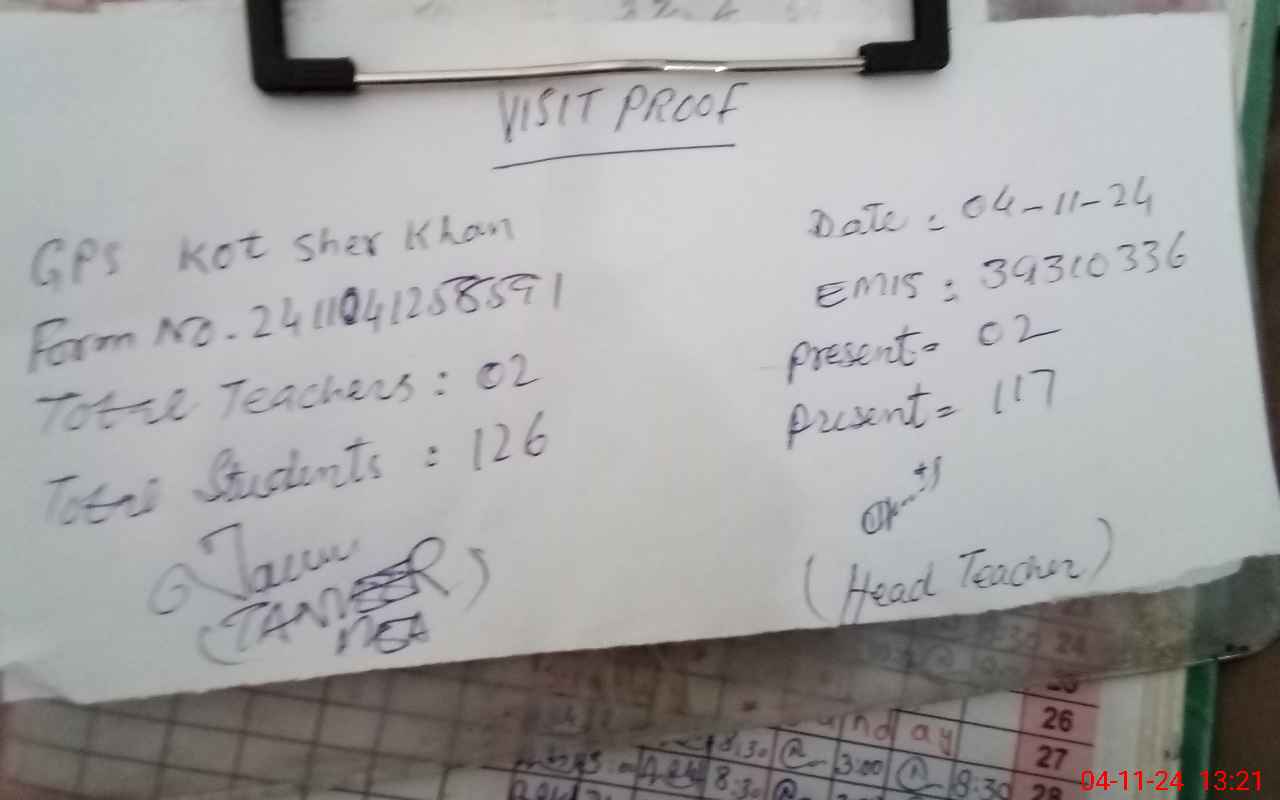 VISIT PROOF
GPS Kot Sher Khan
Date : 04-11-24
Form No. 2411041258591
EMIS : 39310336
Total Teachers : 02
Present = 02
Total Students : 126
Present = 117
(Head Teacher)
26
27
28
Sunday
8:30
3:00
8:30
8:30
04-11-24 13:21